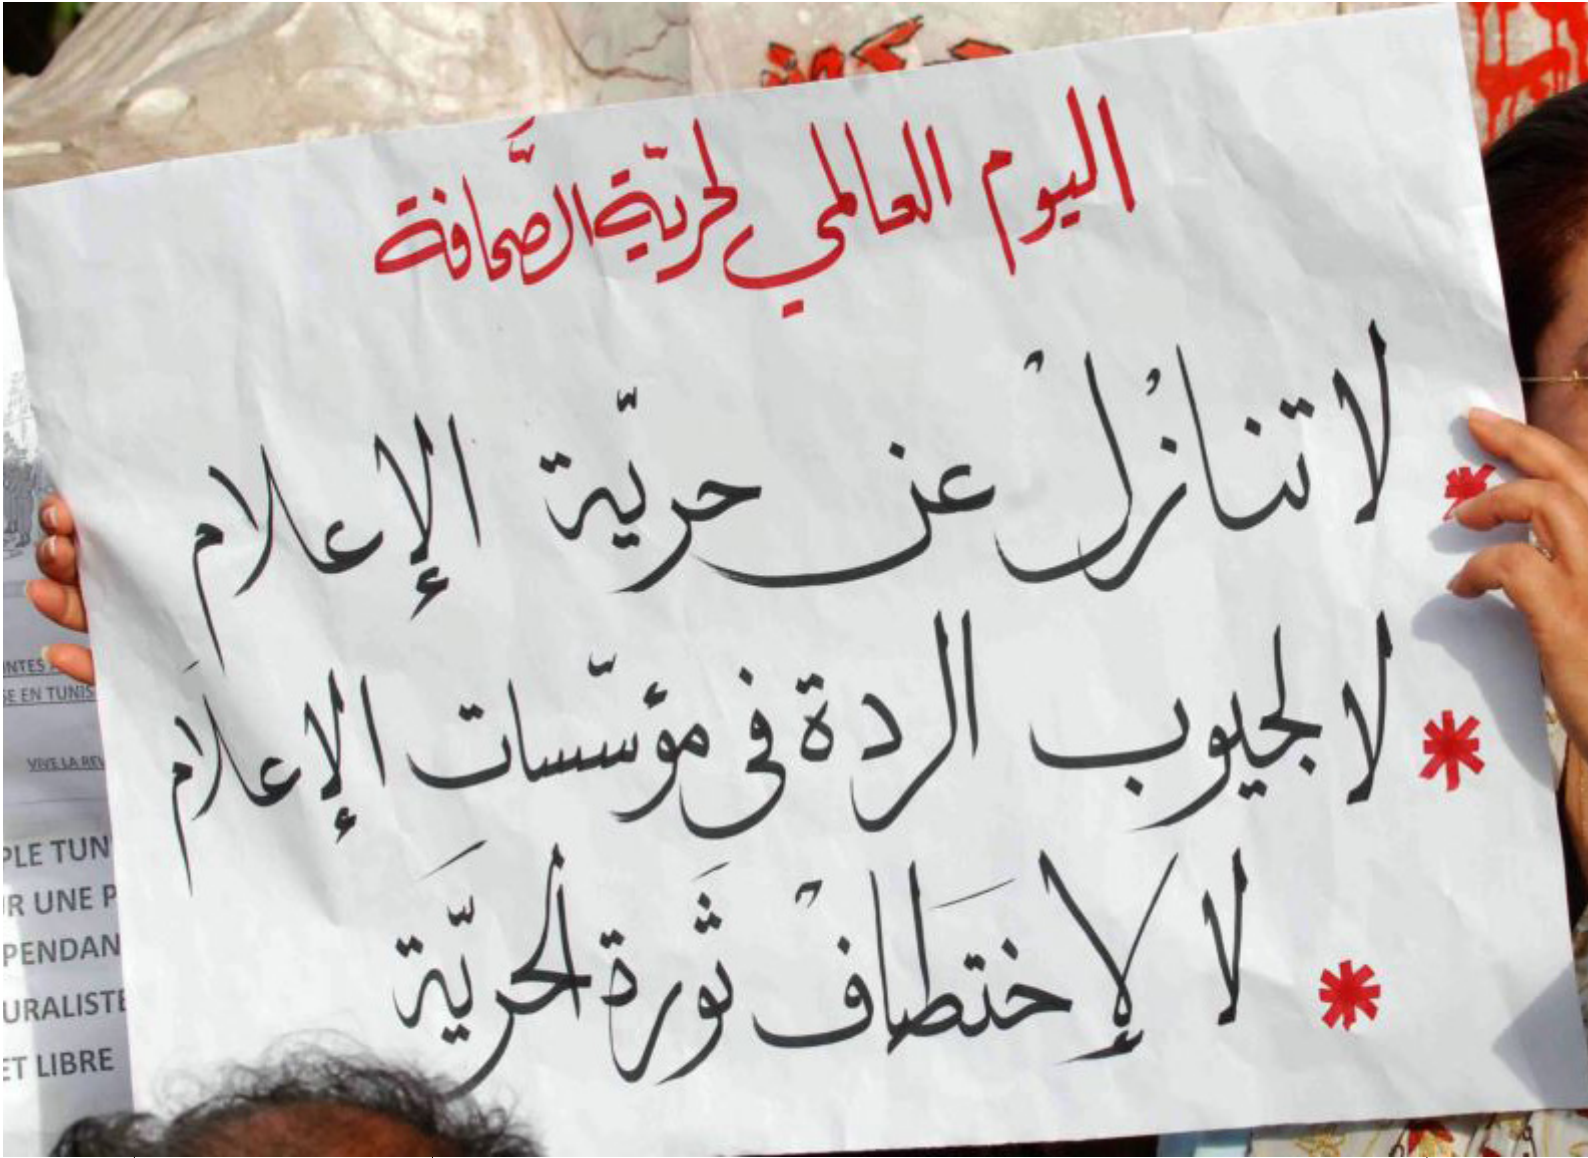 اليوم العالمي لحريّة الصَّحافة
* لا تنازُلْ عن حريّة الإعلام
* لا لجيوب الردة في مؤسّسات الإعلاَم
* لا لإختطَافْ ثَورة الحَريّة
SE EN TUNIS
VIVE LA REV
PLE TUN
R UNE P
PENDAN
URALISTE
ET LIBRE